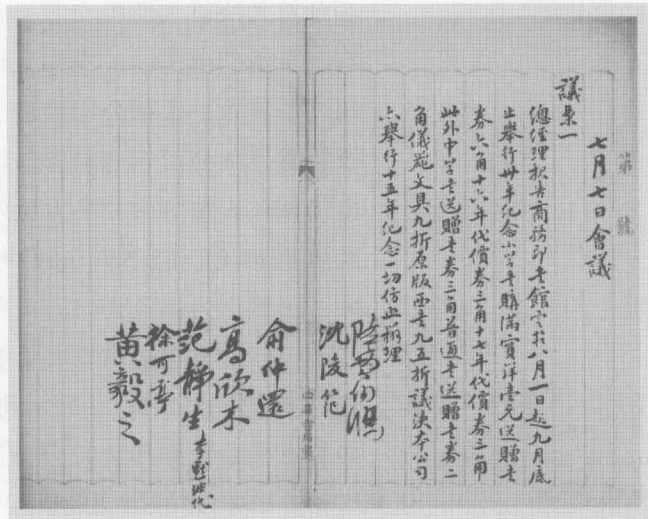 第 號
七月七日會議
議案一
總經理報告商務印書館定於八月一日起九月底
止舉行卅年紀念小學書購滿實洋壹元送贈書
券六角十六年代價券三角十七年代價券三角
此外中學書送贈書券三角普通書送贈書券二
角儀器文具九折原版西書九五折議決本公司
亦舉行十五年紀念一切仿照辦理
陸費伯鴻
沈陵范
中華書局
俞仲還
高欣木
范靜生 代
徐可亭
黃毅之